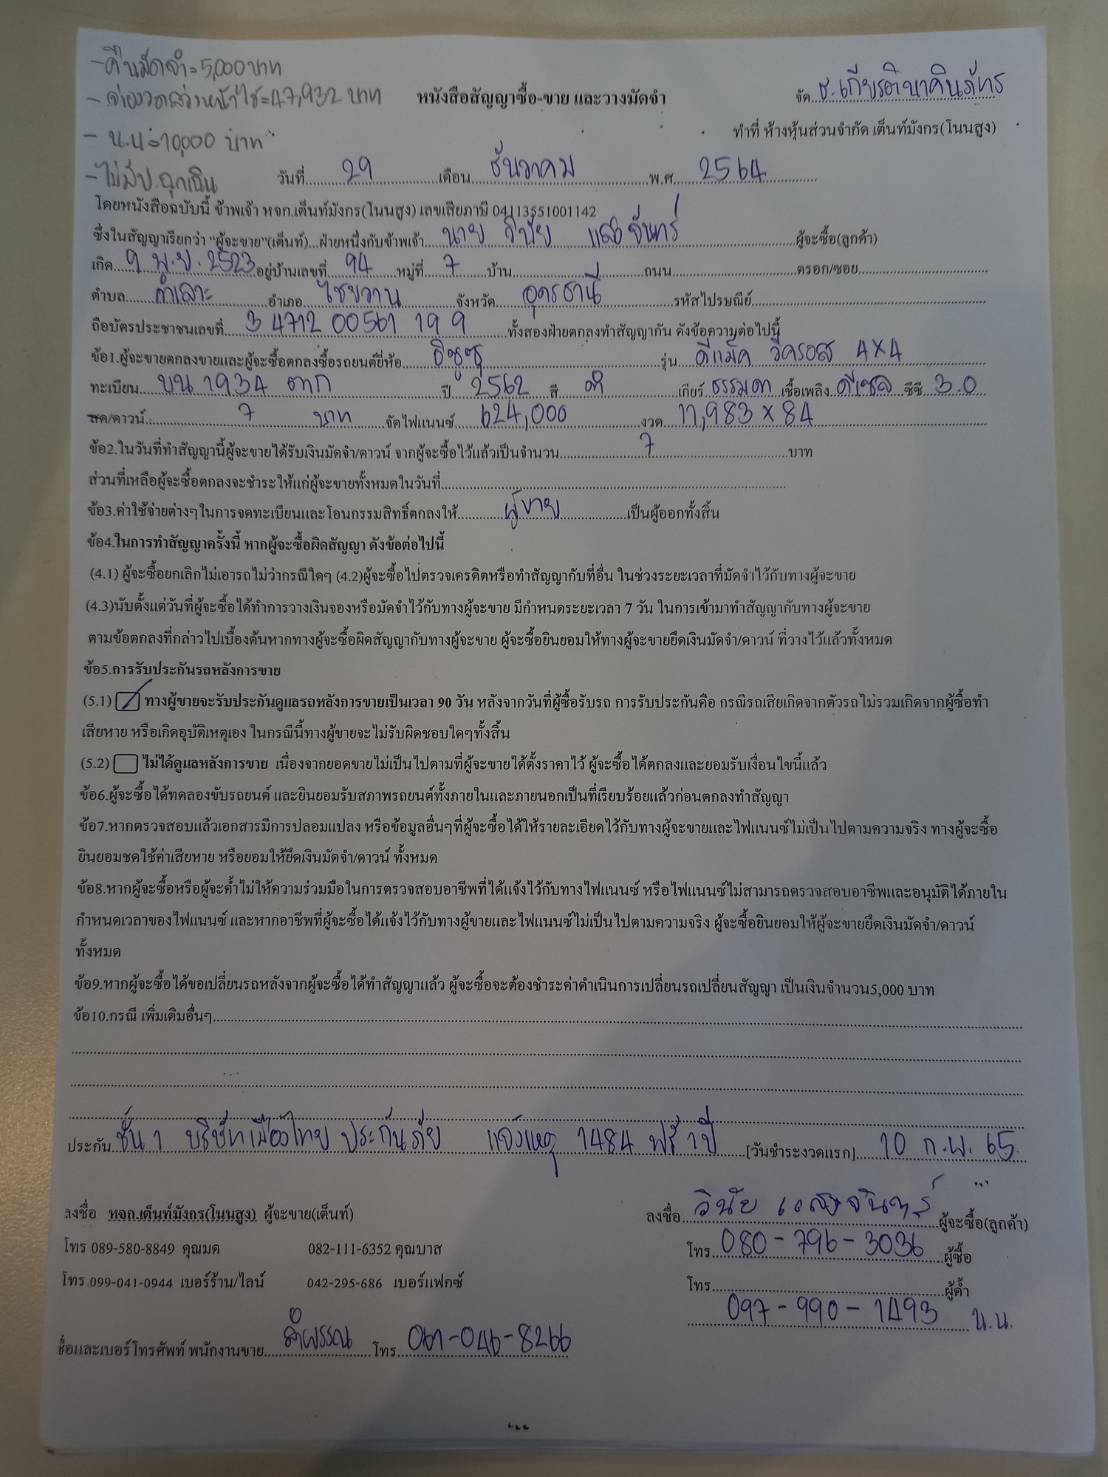 - คืนมัดจำ = 5,000 บาท
- จ่ายงวดล่วงหน้าให้ = 47,932 บาท
หนังสือสัญญาซื้อ-ขาย และวางมัดจำ
จัด ธ.เกียรตินาคินภัทร
- น.น = 10,000 บาท
ทำที่ ห้างหุ้นส่วนจำกัด เต็นท์มังกร(โนนสูง)
- ไม่มีป. ฉุกเฉิน
วันที่ 29 เดือน ธันวาคม พ.ศ. 2564
โดยหนังสือฉบับนี้ ข้าพเจ้า หจก.เต็นท์มังกร(โนนสูง) เลขเสียภาษี 04113551001142
ซึ่งในสัญญาเรียกว่า "ผู้จะขาย"(เต็นท์)...ฝ่ายหนึ่งกับข้าพเจ้า นาย วินัย แสงจันทร์ ผู้จะซื้อ(ลูกค้า)
เกิด 9 พ.ย. 2523 อยู่บ้านเลขที่ 94 หมู่ที่ 7 บ้าน ถนน ตรอก/ซอย
ตำบล คำเลาะ อำเภอ ไชยวาน จังหวัด อุดรธานี รหัสไปรษณีย์
ถือบัตรประชาชนเลขที่ 3 4712 00561 19 9 ทั้งสองฝ่ายตกลงทำสัญญากัน ดังข้อความต่อไปนี้
ข้อ1.ผู้จะขายตกลงขายและผู้จะซื้อตกลงซื้อรถยนต์ยี่ห้อ อีซูซุ รุ่น ดีแม็ค วีครอส 4X4
ทะเบียน บน 1934 ตาก ปี 2562 สี ดำ เกียร์ ธรรมดา เชื้อเพลิง ดีเซล ซีซี 3.0
สด/ดาวน์ 7 บาท จัดไฟแนนซ์ 624,000 งวด 11,983 x 84
ข้อ2.ในวันที่ทำสัญญานี้ผู้จะขายได้รับเงินมัดจำ/ดาวน์ จากผู้จะซื้อไว้แล้วเป็นจำนวน 7 บาท
ส่วนที่เหลือผู้จะซื้อตกลงจะชำระให้แก่ผู้จะขายทั้งหมดในวันที่
ข้อ3.ค่าใช้จ่ายต่างๆในการจดทะเบียนและโอนกรรมสิทธิ์ตกลงให้ ผู้ขาย เป็นผู้ออกทั้งสิ้น
ข้อ4.ในการทำสัญญาครั้งนี้ หากผู้จะซื้อผิดสัญญา ดังข้อต่อไปนี้
(4.1) ผู้จะซื้อยกเลิกไม่เอารถไม่ว่ากรณีใดๆ (4.2)ผู้จะซื้อไปตรวจเครดิตหรือทำสัญญากับที่อื่น ในช่วงระยะเวลาที่มัดจำไว้กับทางผู้จะขาย
(4.3)นับตั้งแต่วันที่ผู้จะซื้อได้ทำการวางเงินจองหรือมัดจำไว้กับทางผู้จะขาย มีกำหนดระยะเวลา 7 วัน ในการเข้ามาทำสัญญากับทางผู้จะขาย
ตามข้อตกลงที่กล่าวไปเบื้องต้นหากทางผู้จะซื้อผิดสัญญากับทางผู้จะขาย ผู้จะซื้อยินยอมให้ทางผู้จะขายยึดเงินมัดจำ/ดาวน์ ที่วางไว้แล้วทั้งหมด
ข้อ5.การรับประกันรถหลังการขาย
(5.1) ทางผู้ขายจะรับประกันดูแลรถหลังการขายเป็นเวลา 90 วัน หลังจากวันที่ผู้ซื้อรับรถ การรับประกันคือ กรณีรถเสียเกิดจากตัวรถ ไม่รวมเกิดจากผู้ซื้อทำ
เสียหาย หรือเกิดอุบัติเหตุเอง ในกรณีนี้ทางผู้ขายจะไม่รับผิดชอบใดๆทั้งสิ้น
(5.2) ไม่ได้ดูแลหลังการขาย เนื่องจากยอดขายไม่เป็นไปตามที่ผู้จะขายได้ตั้งราคาไว้ ผู้จะซื้อได้ตกลงและยอมรับเงื่อนไขนี้แล้ว
ข้อ6.ผู้จะซื้อได้ทดลองขับรถยนต์ และยินยอมรับสภาพรถยนต์ทั้งภายในและภายนอกเป็นที่เรียบร้อยแล้วก่อนตกลงทำสัญญา
ข้อ7.หากตรวจสอบแล้วเอกสารมีการปลอมแปลง หรือข้อมูลอื่นๆที่ผู้จะซื้อได้ให้รายละเอียดไว้กับทางผู้จะขายและไฟแนนซ์ไม่เป็นไปตามความจริง ทางผู้จะซื้อ
ยินยอมชดใช้ค่าเสียหาย หรือยอมให้ยึดเงินมัดจำ/ดาวน์ ทั้งหมด
ข้อ8.หากผู้จะซื้อหรือผู้จะค้ำไม่ให้ความร่วมมือในการตรวจสอบอาชีพที่ได้แจ้งไว้กับทางไฟแนนซ์ หรือไฟแนนซ์ไม่สามารถตรวจสอบอาชีพและอนุมัติได้ภายใน
กำหนดเวลาของไฟแนนซ์ และหากอาชีพที่ผู้จะซื้อได้แจ้งไว้กับทางผู้ขายและไฟแนนซ์ไม่เป็นไปตามความจริง ผู้จะซื้อยินยอมให้ผู้จะขายยึดเงินมัดจำ/ดาวน์
ทั้งหมด
ข้อ9.หากผู้จะซื้อได้ขอเปลี่ยนรถหลังจากผู้จะซื้อได้ทำสัญญาแล้ว ผู้จะซื้อจะต้องชำระค่าดำเนินการเปลี่ยนรถเปลี่ยนสัญญา เป็นเงินจำนวน5,000 บาท
ข้อ10.กรณี เพิ่มเติมอื่นๆ
ประกัน ชั้น 1 บริษัทเมืองไทย ประกันภัย แจ้งเหตุ 1484 ฟรี 1 ปี [วันชำระงวดแรก] 10 ก.พ. 65
ลงชื่อ หจก.เต็นท์มังกร(โนนสูง) ผู้จะขาย(เต็นท์)
ลงชื่อ วินัย แสงจันทร์ ผู้จะซื้อ(ลูกค้า)
โทร 089-580-8849 คุณมด 082-111-6352 คุณบาส
โทร 080-796-3036 ผู้ซื้อ
โทร.099-041-0944 เบอร์ร้าน/ไลน์ 042-295-686 เบอร์แฟกซ์
โทร ผู้ค้ำ
097-990-1493 น.น.
ชื่อและเบอร์โทรศัพท์ พนักงานขาย ลำพรรณ โทร 061-046-8266